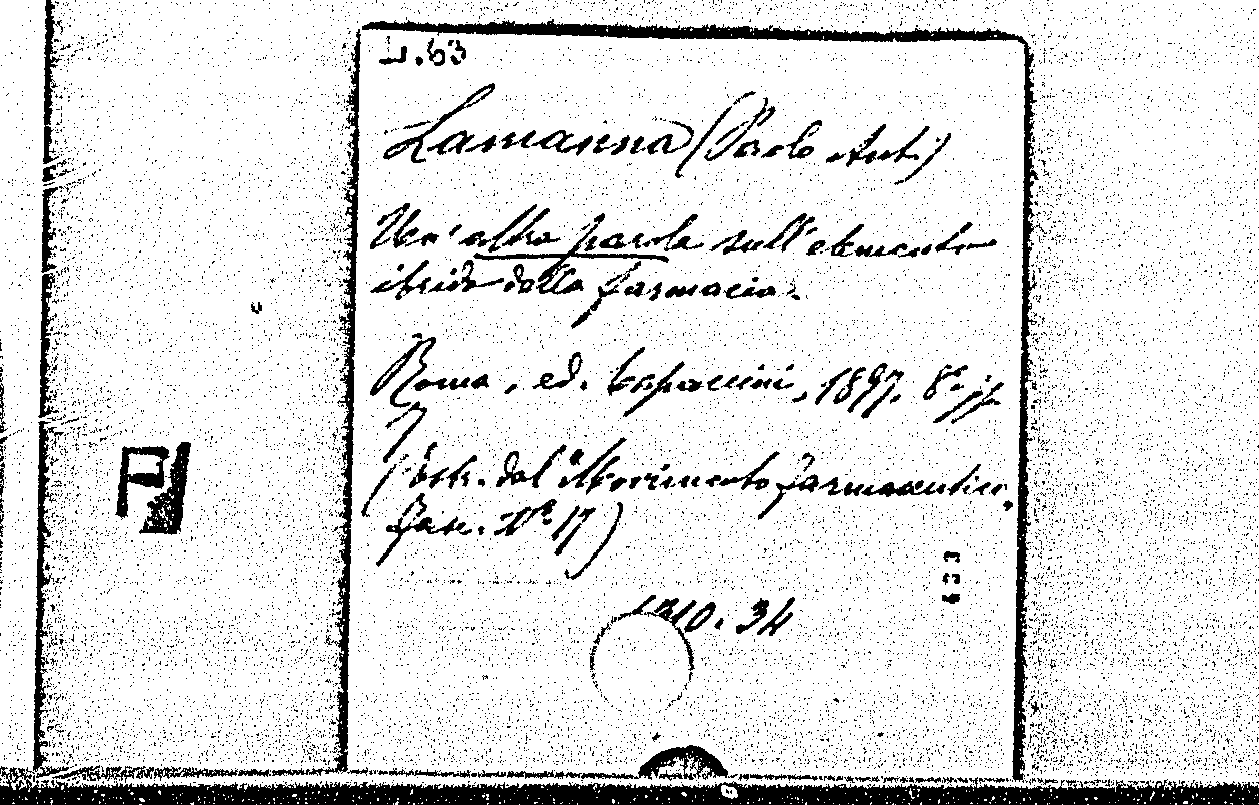 L.63
Lamanna (Paolo Ant.)
Un' altra parola sull'elemento
ibrido della farmacia.
Roma, ed. Capaccini, 1897. 8°
7
(Estr. dal Movimento farmaceutico,
fasc. N° 17)
1310.34
433